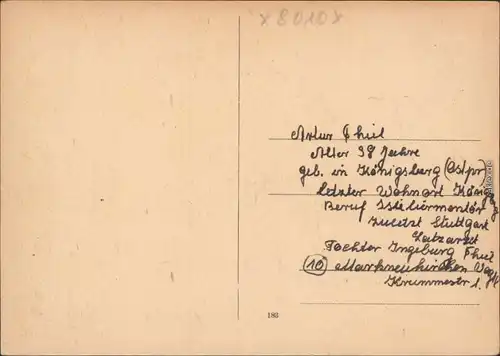 x 8010 x
Artur Thiel
Alter 38 Jahre
geb. in Königsberg (Ostpr)
Letzter Wohnort Königsbg
Beruf
zuletzt Stuttgart
Lazarett
Tochter Ingeburg Thiel
(10) Markneukirchen Vogtl
Krummestr 1.
183